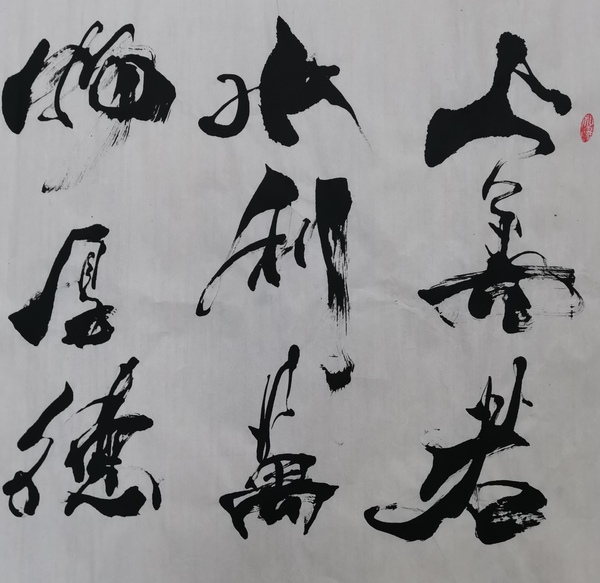 上善若
水利萬
物厚德